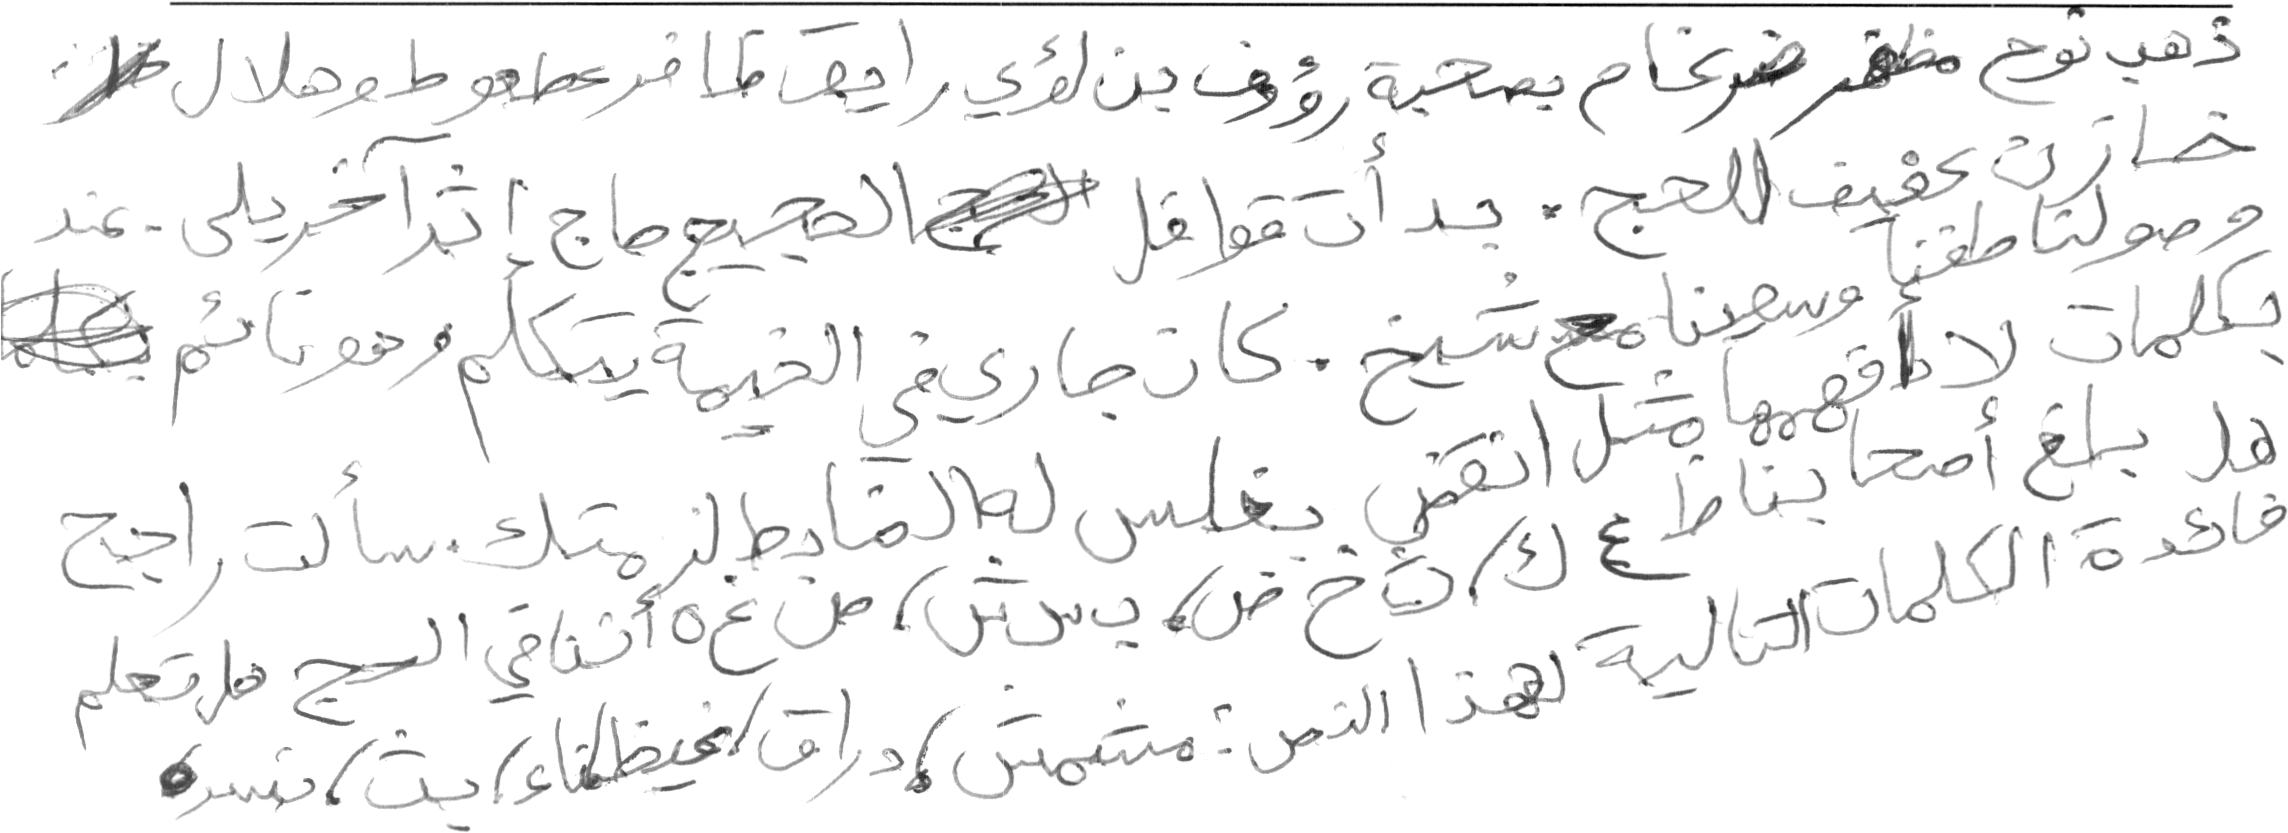 ذهب نوح مظفر ضرغام بصحبة رؤوف بن لؤي رايق ظافر عطعوط وهلال
خازن عفيف للحج . بدأت قوافل الحجيج حاج إثر آخر يلي . عند
وصولنا طفنا وسعينا مع شيخ . كان جاري في الخيمة يتكلم وهو نائم
بكلمات لا أفقهها مثل انقض بغلس له الضابط لزمتك . سألت راجح
هل بلغ أصحابنا ظ ع ك، ث خ ض، ب س ش، ص غ ه أننا في الحج هل تعلم
فائدة الكلمات التالية لهذا النص : مشمش، دراق، غيظ، ناء، بث، نسر